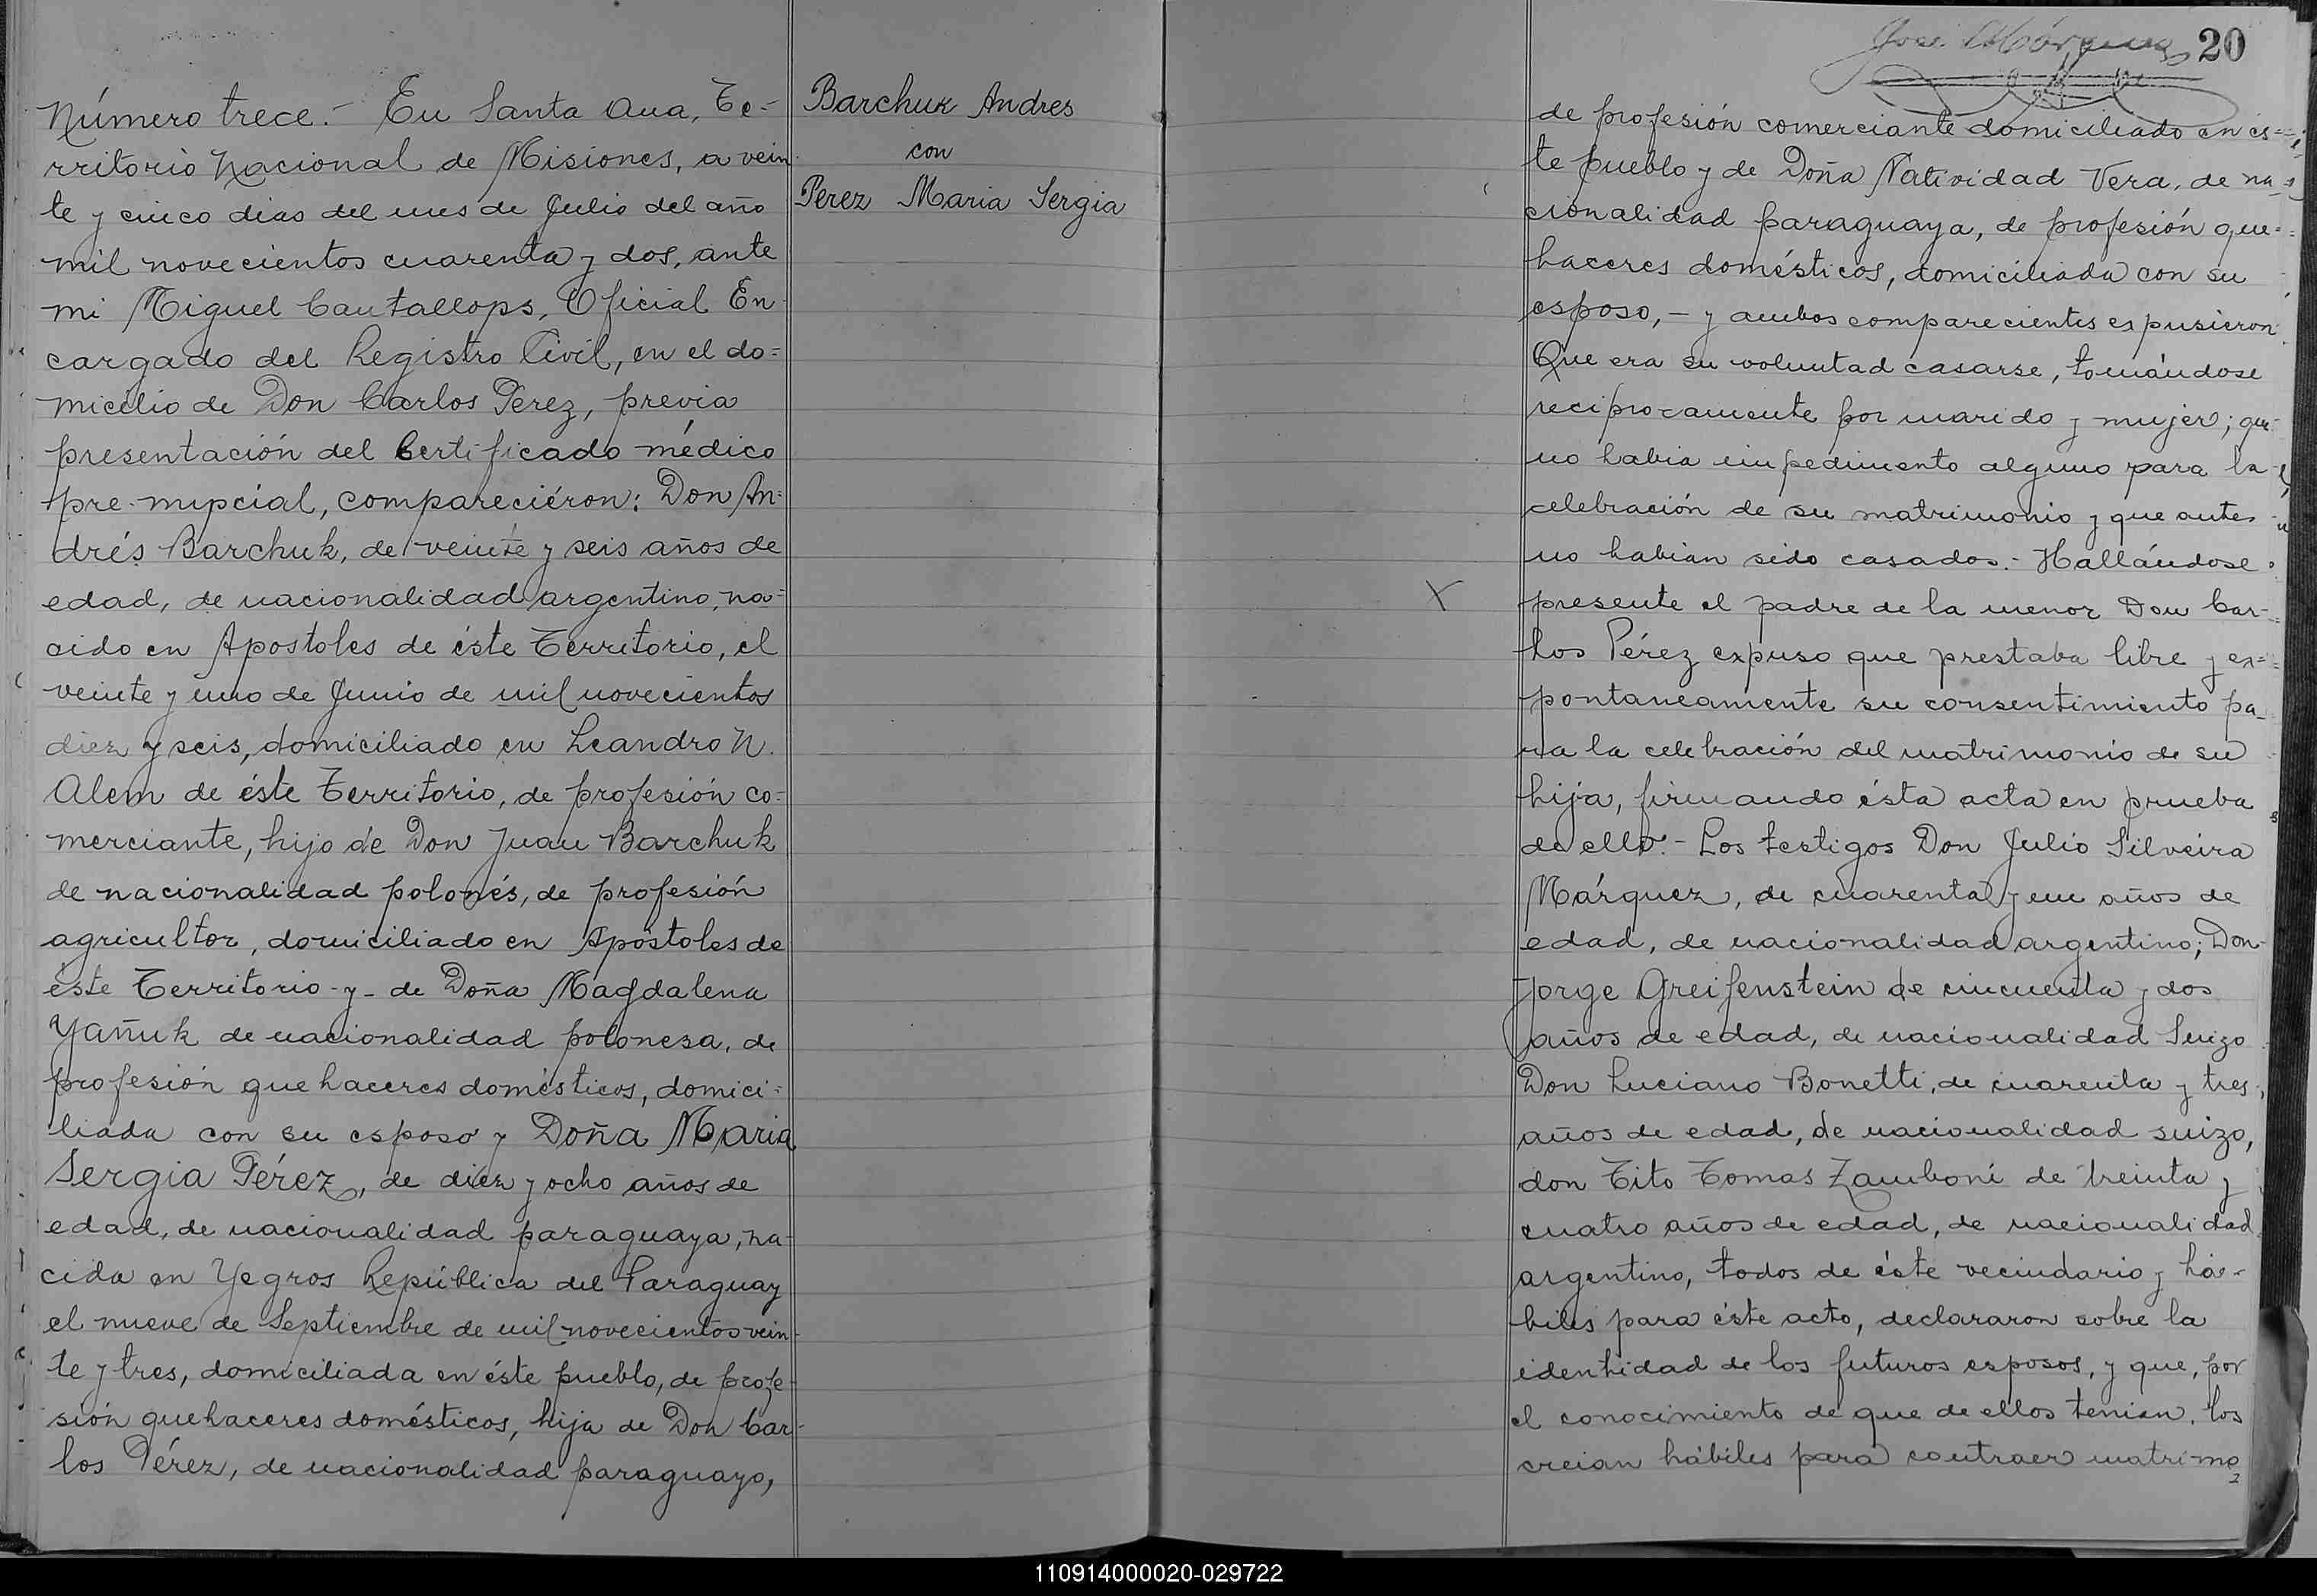 Número trece.- En Santa Ana, Te-
rritorio Nacional de Misiones, a vein
te y cinco dias del mes de Julio del año
mil novecientos cuarenta y dos, ante
mi Miguel Cantallops, Oficial En-
cargado del Registro Civil, en el do=
micilio de Don Carlos Perez, previa
presentación del Certificado médico
pre-nupcial, compareciéron: Don An=
drés Barchuk, de veinte y seis años de
edad, de nacionalidad argentino, na=
cido en Apostoles de éste Territorio, el
veinte y uno de Junio de mil novecientos
diez y seis, domiciliado en Leandro N.
Alem de éste Territorio, de profesión co=
merciante, hijo de Don Juan Barchuk
de nacionalidad polonés, de profesión
agricultor, domiciliado en Apóstoles de
éste Territorio - y - de Doña Magdalena
Yañuk de nacionalidad polonesa, de
profesión quehaceres domésticos, domici=
liada con su esposo y Doña Maria
Sergia Pérez, de diez y ocho años de
edad, de nacionalidad paraguaya, na-
cida en Yegros República del Paraguay
el nueve de Septiembre de mil novecientos vein-
te y tres, domiciliada en éste pueblo, de profe-
sión quehaceres domésticos, hija de Don Car-
los Pérez, de nacionalidad paraguayo,
Barchuk Andres
con
Perez Maria Sergia
20
de profesión comerciante domiciliado en és=
te pueblo y de Doña Natividad Vera, de na-
cionalidad paraguaya, de profesión que-
haceres domésticos, domiciliada con su
esposo, - y ambos comparecientes expusieron
Que era su voluntad casarse, tomándose
reciprocamente por marido y mujer; que
no habia impedimento alguno para la
celebración de su matrimonio y que antes
no habian sido casados.- Hallándose
presente el padre de la menor Don Car-
los Pérez expuso que prestaba libre y ex=
pontaneamente su consentimiento pa-
ra la celebración del matrimonio de su
hija, firmando ésta acta en prueba
de ello.- Los testigos Don Julio Silveira
Márquez, de cuarenta y un años de
edad, de nacionalidad argentino; Don
Jorge Greifenstein de cincuenta y dos
años de edad, de nacionalidad Suizo
Don Luciano Bonetti, de cuarenta y tres
años de edad, de nacionalidad suizo,
don Tito Tomas Zamboni de treinta y
cuatro años de edad, de nacionalidad
argentino, todos de éste vecindario y há-
biles para éste acto, declararon sobre la
identidad de los futuros esposos, y que, por
el conocimiento de que de ellos tenian, los
creian hábiles para contraer matrimo
110914000020-029722